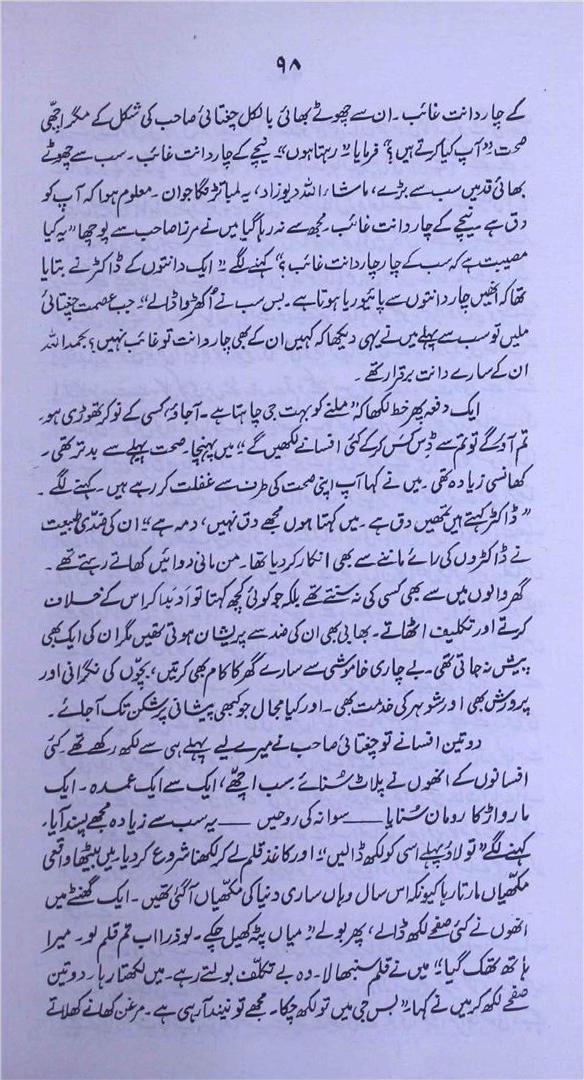 ۹۸
کے چار دانت غائب۔ ان سے چھوٹے بھائی بالکل چغتائی صاحب کی شکل کے مگر اچھّی
صحت۔ "آپ کیا کرتے ہیں؟" فرمایا "رہتا ہوں"۔ نیچے کے چار دانت غائب۔ سب سے چھوٹے
بھائی قد میں سب سے بڑے، ماشاء اللہ دیوزاد، یہ لمبا تڑنگا جوان۔ معلوم ہوا کہ آپ کو
دق ہے نیچے کے چار دانت غائب۔ مجھ سے نہ رہا گیا میں نے مرزا صاحب سے پوچھا "یہ کیا
مصیبت ہے کہ سب کے چار چار دانت غائب؟" کہنے لگے "ایک دانتوں کے ڈاکٹر نے بتایا
تھا کہ انھیں چار دانتوں سے پائیوریا ہوتا ہے۔ بس سب نے اُکھڑوا ڈالے"۔ جب عصمت چغتائی
ملیں تو سب سے پہلے میں نے یہی دیکھا کہ کہیں ان کے بھی چار دانت تو غائب نہیں؟ بحمد اللہ
ان کے سارے دانت برقرار تھے۔
ایک دفعہ پھر خط لکھا کہ "ملنے کو بہت جی چاہتا ہے۔ آجاؤ، کسی کے نوکر تھوڑی ہو۔
تم آؤ گے تو تم سے ڈس کَس کر کے کئی افسانے لکھیں گے" میں پہنچا۔ صحت پہلے سے بدتر تھی۔
کھانسی زیادہ تھی۔ میں نے کہا آپ اپنی صحت کی طرف سے غفلت کر رہے ہیں۔ کہنے لگے۔
"ڈاکٹر کہتے ہیں تمھیں دق ہے۔ میں کہتا ہوں مجھے دق نہیں، دمہ ہے"۔ ان کی ضدّی طبیعت
نے ڈاکٹروں کی رائے ماننے سے بھی انکار کر دیا تھا۔ من مانی دوائیں کھاتے رہتے تھے۔
گھر والوں میں سے بھی کسی کی نہ سنتے تھے بلکہ جو کوئی کچھ کہتا تو اَدبدا کر اس کے خلاف
کرتے اور تکلیف اٹھاتے۔ بھابی بھی ان کی ضد سے پریشان ہوتی تھیں مگر ان کی ایک بھی
پیش نہ جاتی تھی۔ بے چاری خاموشی سے سارے گھر کا کام بھی کرتیں، بچّوں کی نگرانی اور
پرورش بھی اور شوہر کی خدمت بھی۔ اور کیا مجال جو کبھی پیشانی پر شکن تک آجائے۔
دو تین افسانے تو چغتائی صاحب نے میرے لیے پہلے ہی سے لکھ رکھے تھے۔ کئی
افسانوں کے انھوں نے پلاٹ سُنائے۔ سب اچھّے، ایک سے ایک عمدہ۔ ایک
مارواڑ کا رومان سُنایا —— سوانہ کی روحیں —— یہ سب سے زیادہ مجھے پسند آیا۔
کہنے لگے "تو لاؤ پہلے اسی کو لکھ ڈالیں"۔ اور کاغذ قلم لے کر لکھنا شروع کر دیا۔ میں بیٹھا واقعی
مکھّیاں مارتا رہا کیونکہ اس سال وہاں ساری دنیا کی مکھّیاں آگئی تھیں۔ ایک گھنٹے میں
انھوں نے کئی صفحے لکھ ڈالے، پھر بولے "میاں پٹہ کھیل چکے۔ لو ذرا اب تم قلم لو۔ میرا
ہاتھ تھک گیا" میں نے قلم سنبھالا۔ وہ بے تکلّف بولتے رہے۔ میں لکھتا رہا۔ دو تین
صفحے لکھ کر میں نے کہا۔ "بس جی میں تو لکھ چکا۔ مجھے تو نیند آرہی ہے۔ مرغن کھانے کھلاتے